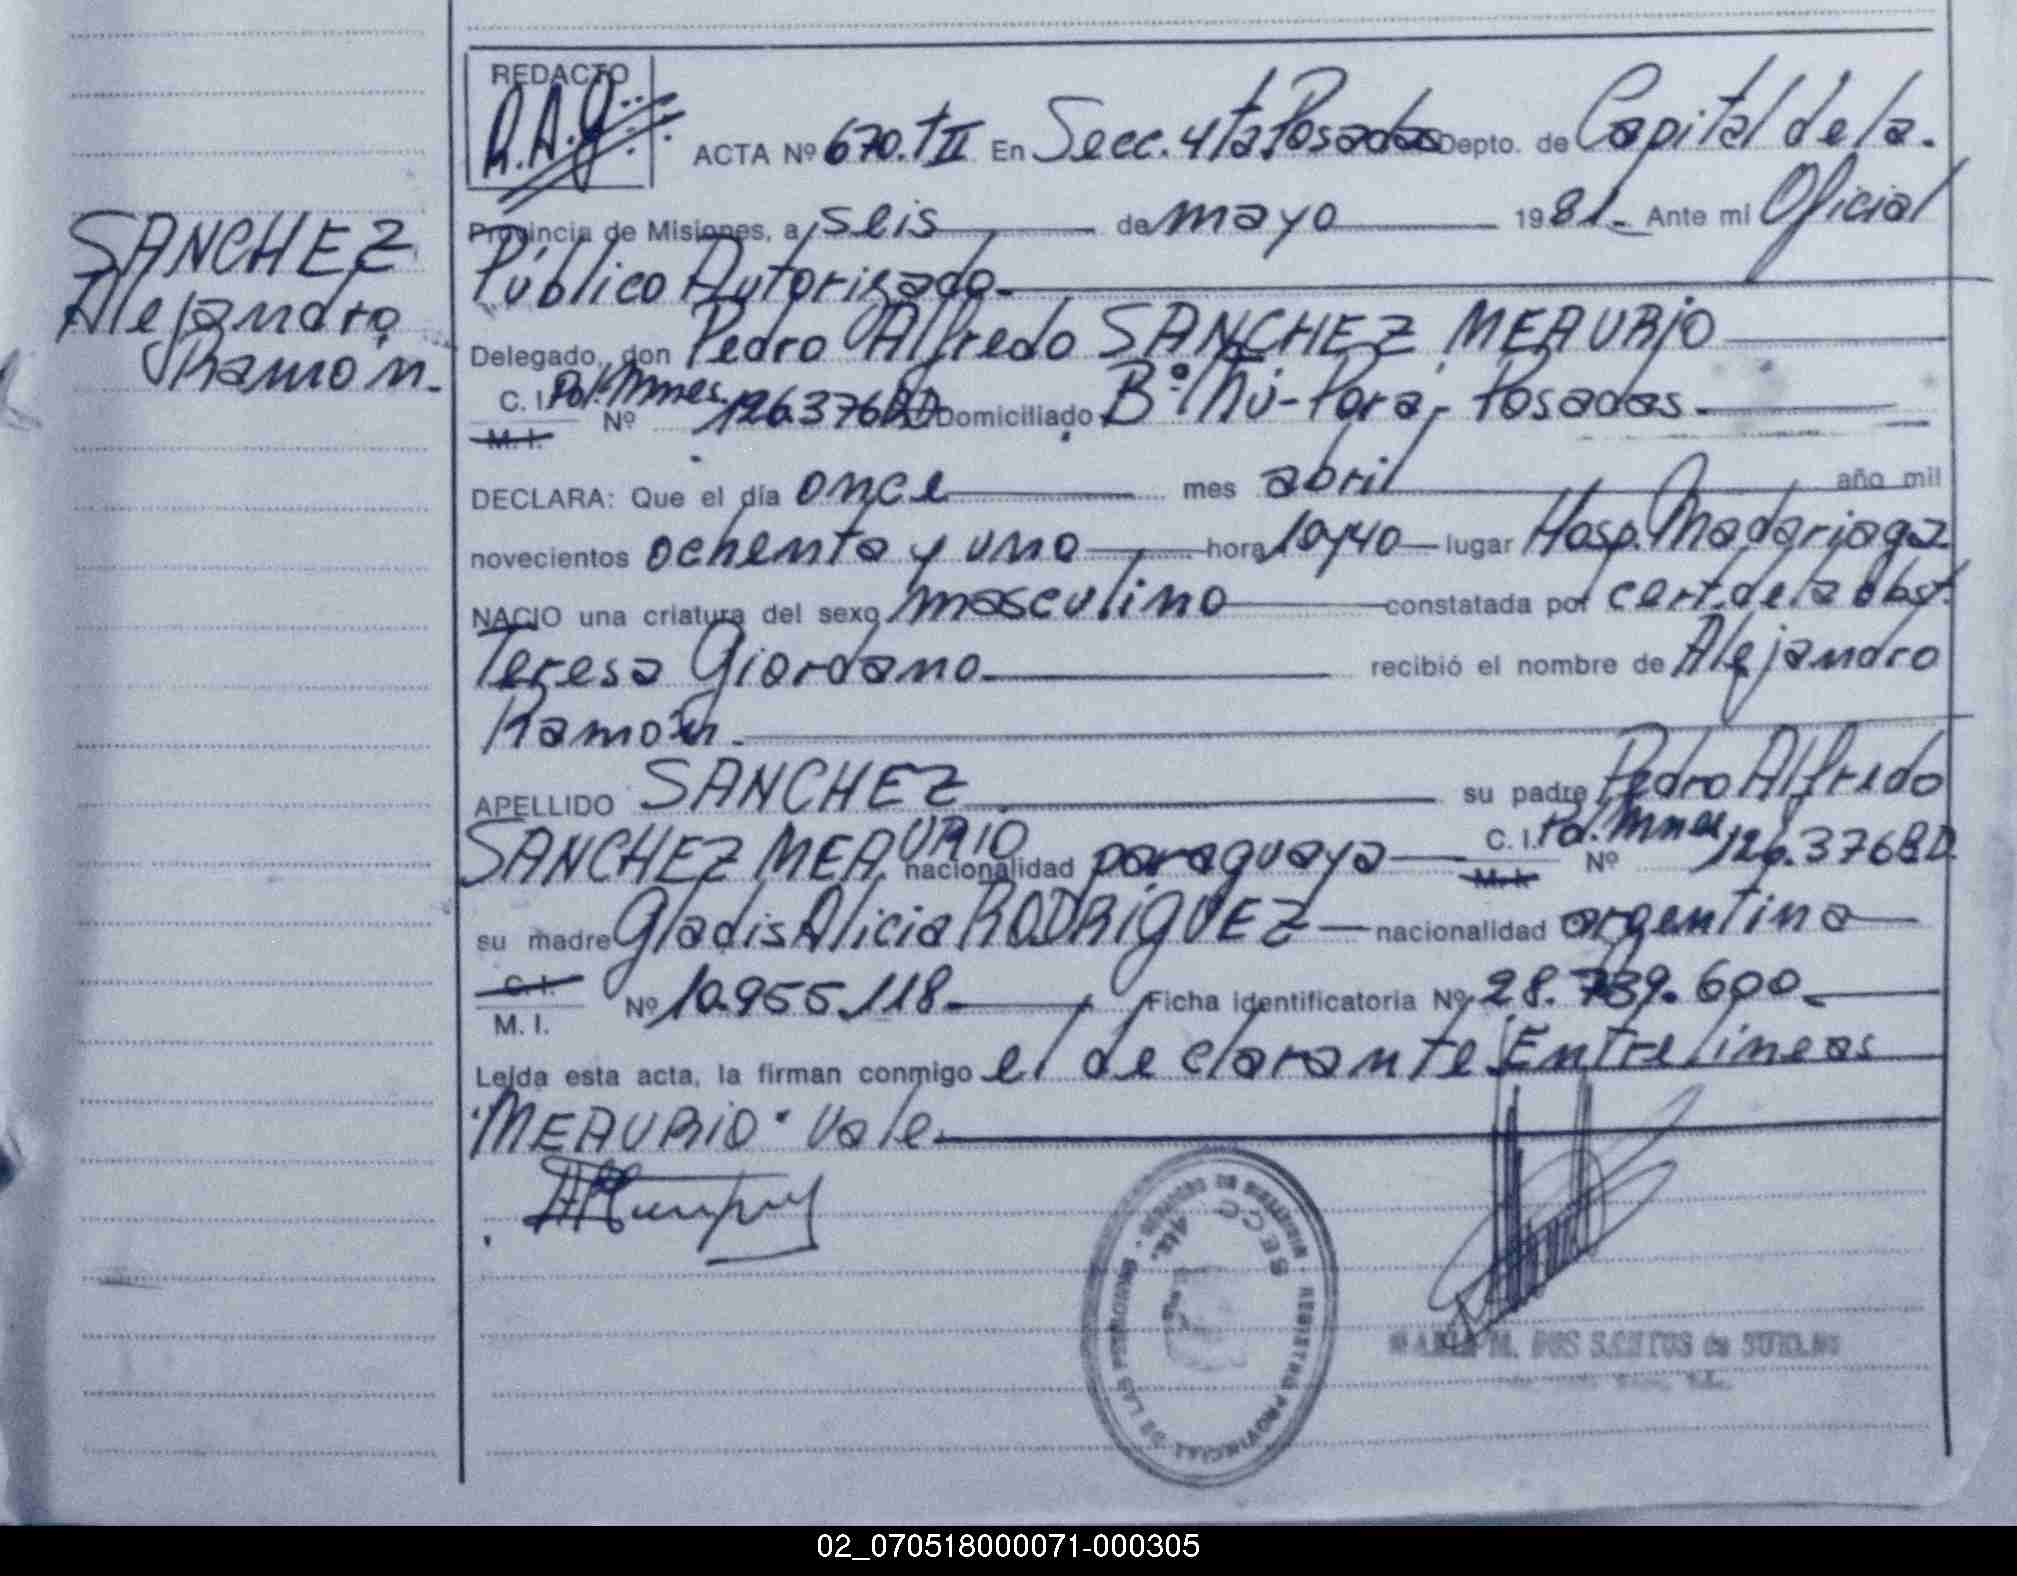 SANCHEZ
Alejandro
Ramón.
REDACTO
R.A.G.
ACTA Nº 670.TII En Secc. 4ta Posadas Depto. de Capital de la.
Provincia de Misiones, a seis de mayo 1981. Ante mi Oficial
Público Autorizado.
Delegado, don Pedro Alfredo SANCHEZ MEAURIO
C. I. Pol. Mnes. Nº 126.376 B.D Domiciliado Bº. Ñú-Porá, Posadas.
M. I.
DECLARA: Que el día once mes abril año mil
novecientos ochenta y uno hora 10y40 lugar Hosp. Madariaga
NACIO una criatura del sexo masculino constatada por cert. de la obst.
Teresa Giordano. recibió el nombre de Alejandro
Ramón.
APELLIDO SANCHEZ su padre Pedro Alfredo
SANCHEZ MEAURIO nacionalidad paraguaya C. I. Pol. Mnes Nº 126.376 B.D.
M. I.
su madre Gladis Alicia RODRIGUEZ nacionalidad argentina
C. I.
M. I. Nº 10.955.118. Ficha identificatoria Nº 28.739.600.
Leída esta acta, la firman conmigo el declarante. Entrelineas
"MEAURIO" Vale.
REGISTRO PROVINCIAL DE LAS PERSONAS
SECC 4ta.
MARIA M. DOS SANTOS de
02_070518000071-000305